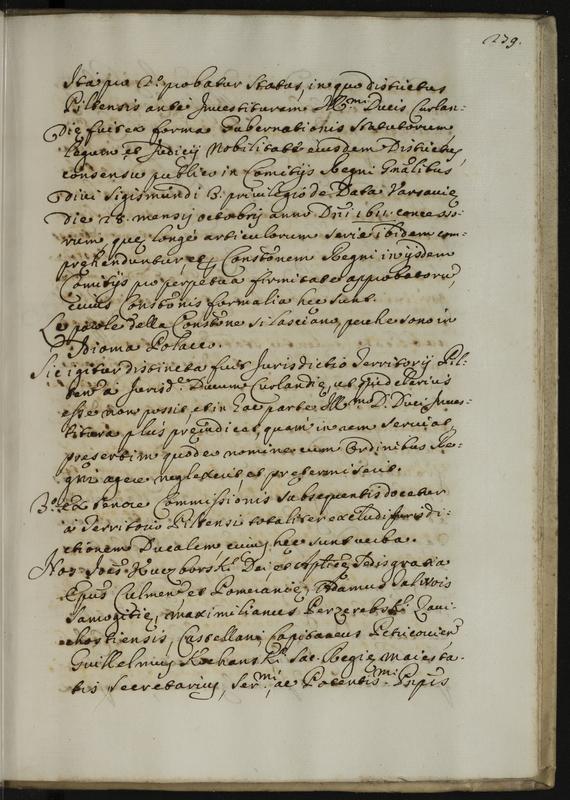 239.
Ita pro 2.o probatur Status, in quo districtus
Piltensis ante Investituram Ill.mi Ducis Curlan=
die fuit ex forma Gubernationis Statutorum
legum et Judicij Nobilitatis eiusdem Districtus,
consensu publico in Comitijs Regni Gnãlibus
Divi Sigismundi 3. privilegio de Data Varsavie
die 28. mensis octobris anno Dni 1611. concesso=
rum que longe articulorum serie ibidem com=
prehenduntur, et Constõnem Regni in ijsdem
Comitijs pro perpetua firmitate approbatorũ,
cuius Constõnis formalia hec sunt.
Le parole della Constõne si lasciano, perche sono in
Idioma Polacco.
Sic igitur distincta fuit Jurisdictio Territorij Pil=
tens a Jurisd.e Ducum Curlandie, ut Judicarius
esse non possit et in hac parte Ill.mo D. Duci Inves=
titura plus prejudicet, quam in rem serviat,
presertim quod eo nomine cum Ordinibus Re=
gni agere neglexerit, et pretermiserit.
3.o ex tenore Commissionis subsequentis docetur
a Territorio Piltensi totaliter excludi Jurisdi=
ctionem Ducalem cuius hec sunt verba.
Nos Joẽs Kuczborski Dei, et Aplice Sedis gratia
Epũs Culmen et Pomeranie, Adamus
Samogitie, Maximilianus Przerebski Zavi=
chostiensis, Castellani, Capitaneus Petricovien
Guillelmus Kochanski Sac. Regie Maiesta=
tis Secretarius, Ser.mi, ac Potentis.mi Prĩpis